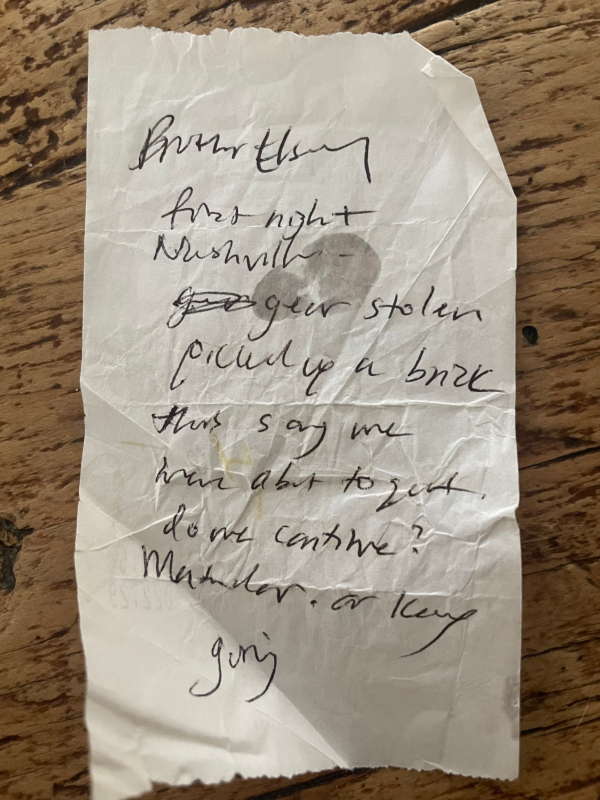 Brother Elsey
first night
Nashville -
gear stolen
picked up a brick
this song we
were about to quit.
do we continue?
Matador. or keep
going